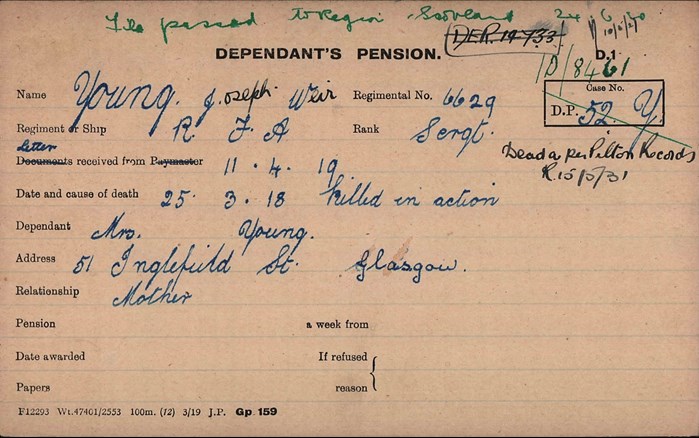 File passed to Region Scotland 24 6 20
10/2/21
DEPENDANT'S PENSION.
DER. 19733
D.1
/D/8461
Name Young. Joseph Weir Regimental No. 6629
Case No.
D.P. 52. Y.
Regiment or Ship R F A Rank Sergt.
letter
Documents received from Paymaster 11 . 4 . 19
Dead as per Pilton Records
R.15/5/31
Date and cause of death 25 . 3 . 18 Killed in action
Dependant Mrs. Young.
Address 51 Inglefield St. Glasgow.
Relationship Mother
Pension a week from
Date awarded If refused
Papers reason
F12293 Wt.47401/2553 100m. (12) 3/19 J.P. Gp 159